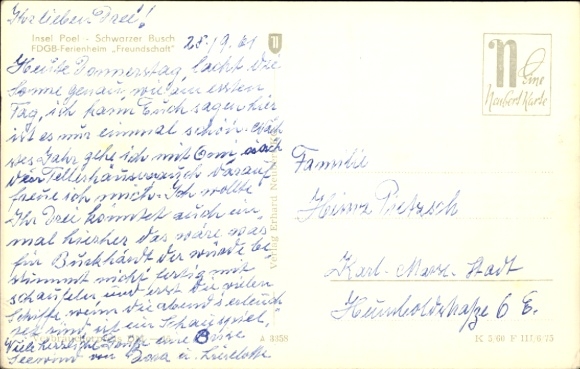 Ihr lieben Drei!
Insel Poel - Schwarzer Busch
FDGB-Ferienheim „Freundschaft"
28./9. 61
Heute Donnerstag, lacht die
Sonne genau wie am ersten
Tag, ich kann Euch sagen hier
ist es nur einmal schön. Näch
stes Jahr gehe ich mit Omi nach
den Tellerhäusern darauf
freue ich mich. Ich wollte
Ihr Drei könntet auch ein
mal hierher das wäre was
für Burkhardt der würde be
stimmt nicht fertig mit
schaufeln und erst die vielen
Schiffe wenn die abends erleuch
tet sind ist ein Schauspiel,
Viele herzliche Grüße eine Brise
Seewind von Dora u. Liselotte
Verlag Erhard
A 3358
Eine
Neubert Karte
Familie
Heinz Pietzsch
Karl-Marx-Stadt
Humboldstraße 6 E.
K 5/60 F III/6/75